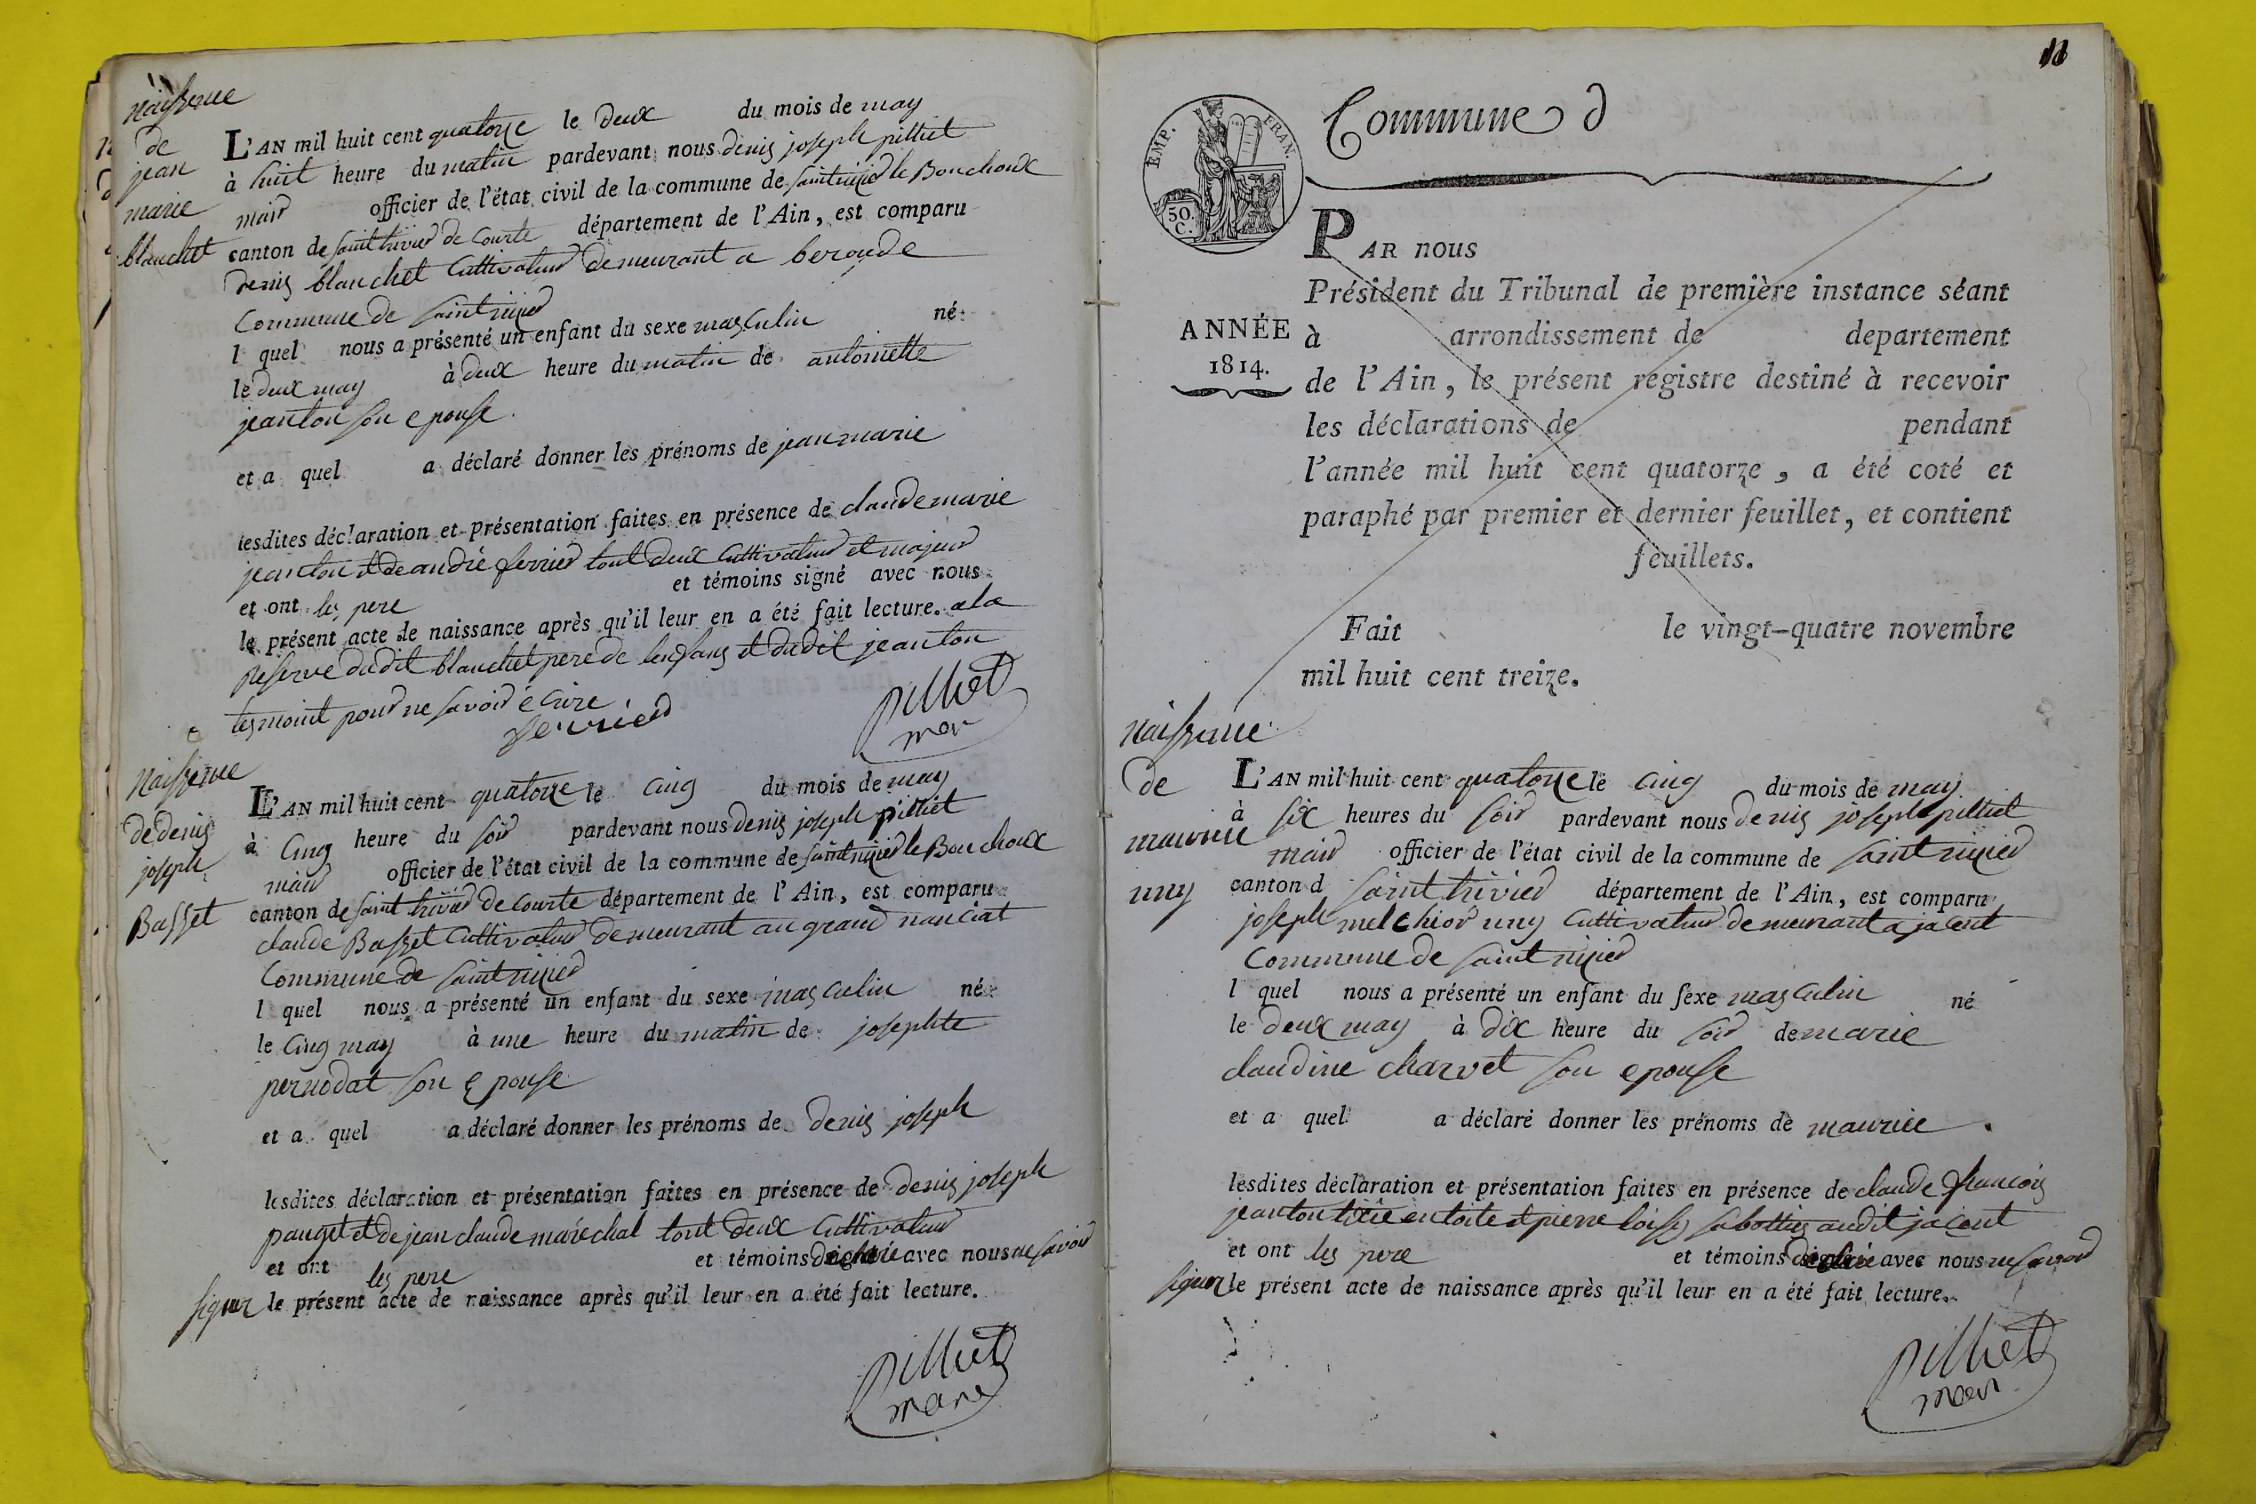 Naissance
de
jean
marie
blanchet
L'AN mil huit cent quatorze le deux du mois de may
à huit heure du matin pardevant nous denis joseph pilliet
mair officier de l'état civil de la commune de saint nizier le Bouchoux
canton de saint trivier de Courte département de l'Ain, est comparu
denis blanchet Cultivateur demeurant a beroude
Commune de saint nizier
l quel nous a présenté un enfant du sexe masculin né
le deux may à deux heure du matin de antoinette
jeanton son epouse
et a quel a déclaré donner les prénoms de jean marie
lesdites déclaration et présentation faites en présence de claude marie
jeanton et de andré ferrier tout deux Cultivateur et majeur
et ont les pere et témoins signé avec nous
le présent acte de naissance après qu'il leur en a été fait lecture. a la
Reserve dudit blanchet pere de lenfans et dudit jeanton
tesmoint pour ne savoir écrire
pilliet
mer
Naissance
de denis
joseph
Basset
L'AN mil huit cent quatorze le cinq du mois de may
à Cinq heure du soir pardevant nous denis joseph pilliet
mair officier de l'état civil de la commune de saint nizier le Bouchoux
canton de saint trivier de Courte département de l'Ain, est comparu
claude Basset Cultivateur demeurant au grand nanciat
Commune de saint nizier
l quel nous a présenté un enfant du sexe masculin né
le Cinq may à une heure du matin de josephte
pernodat son Epouse
et a quel a déclaré donner les prénoms de denis joseph
lesdites déclaration et présentation faites en présence de denis joseph
pauget et de jean claude maréchal tout deux Cultivateur
et ont les pere et témoins avec nous ne savoir
signer le présent acte de naissance après qu'il leur en a été fait lecture.
pilliet
mare
11
EMP. FRAN.
50.
C.
Commune d
PAR nous
Président du Tribunal de première instance séant
à arrondissement de departement
de l'Ain, le présent registre destiné à recevoir
les déclarations de pendant
l'année mil huit cent quatorze, a été coté et
paraphé par premier et dernier feuillet, et contient
feuillets.
Fait le vingt-quatre novembre
mil huit cent treize.
ANNÉE
1814.
Naissance
de
maurice
uny
L'AN mil huit cent quatorze le cinq du mois de may
à six heures du soir pardevant nous denis joseph pilliet
mair officier de l'état civil de la commune de saint nizier
canton d saint trivier département de l'Ain, est comparu
joseph melchior uny Cultivateur demeurant a jacent
Commune de saint nizier
l quel nous a présenté un enfant du sexe masculin né
le deux may à dix heure du soir de marie
claudine charvet son epouse
et a quel a déclaré donner les prénoms de maurice.
lesdites déclaration et présentation faites en présence de claude francois
jeanton et pierre sabottier audit jacent
et ont les pere et témoins avec nous ne savoir
signer le présent acte de naissance après qu'il leur en a été fait lecture.
pilliet
mer